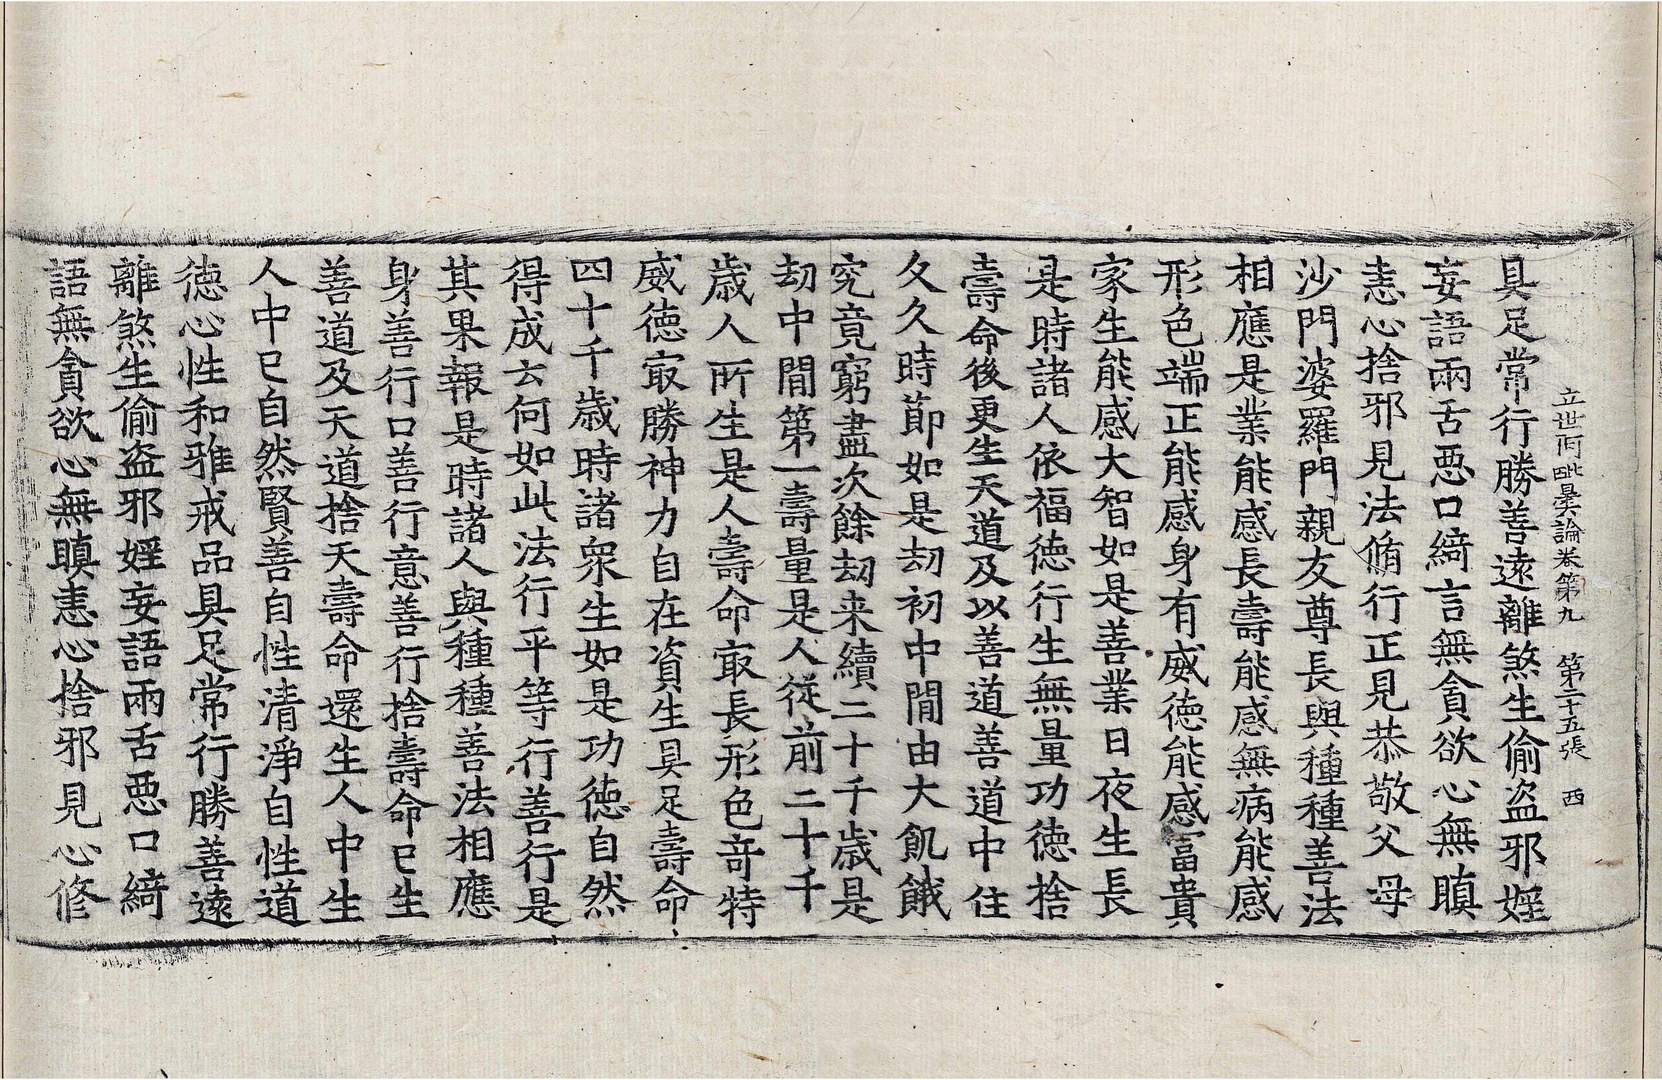 立世阿毗曇論卷第九　第二十五張　西
具足常行勝善遠離煞生偷盗邪婬
妄語兩舌惡口綺言無貪欲心無瞋
恚心捨邪見法脩行正見恭敬父母
沙門婆羅門親友尊長與種種善法
相應是業能感長壽能感無病能感
形色端正能感身有威徳能感富貴
家生能感大智如是善業日夜生長
是時諸人依福徳行生無量功徳捨
壽命後更生天道及以善道善道中住
久久時節如是劫初中間由大飢餓
究竟窮盡次餘劫来續二十千歳是
劫中間第一壽量是人從前二十千
歳人所生是人壽命㝡長形色奇特
威徳㝡勝神力自在資生具足壽命
四十千歳時諸衆生如是功徳自然
得成云何如此法行平等行善行是
其果報是時諸人與種種善法相應
身善行口善行意善行捨壽命已生
善道及天道捨天壽命還生人中生
人中已自然賢善自性清淨自性道
徳心性和雅戒品具足常行勝善遠
離煞生偷盗邪婬妄語兩舌惡口綺
語無貪欲心無瞋恚心捨邪見心修